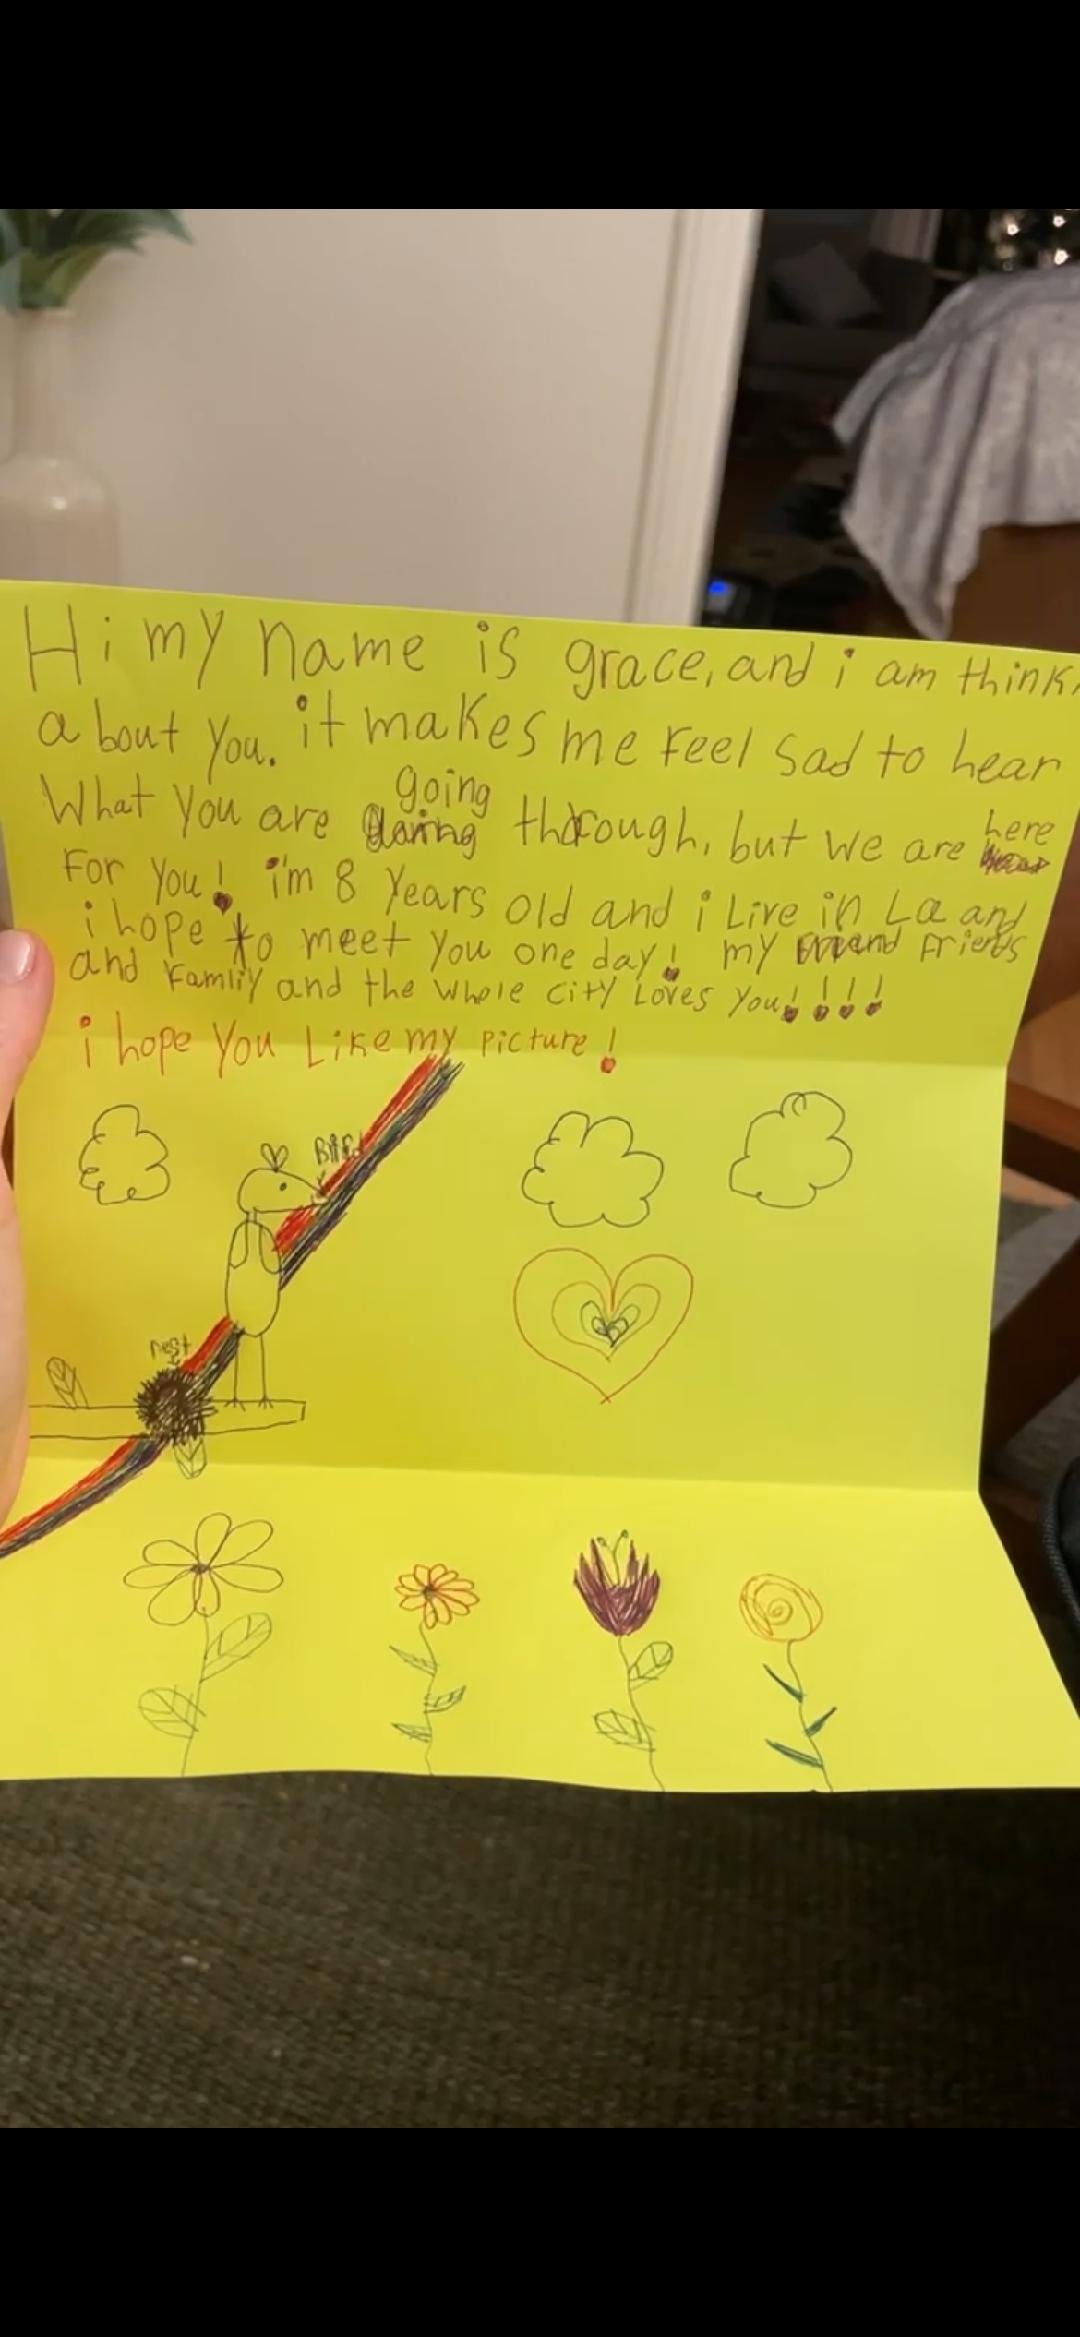 Hi my name is grace, and i am think
about you. it makes me feel sad to hear
What you are going through, but we are here
For you! i'm 8 years old and i Live in La and
i hope to meet you one day! my friends
and Famliy and the whole city Loves you!!!!
i hope you Like my picture!
Bird
nest